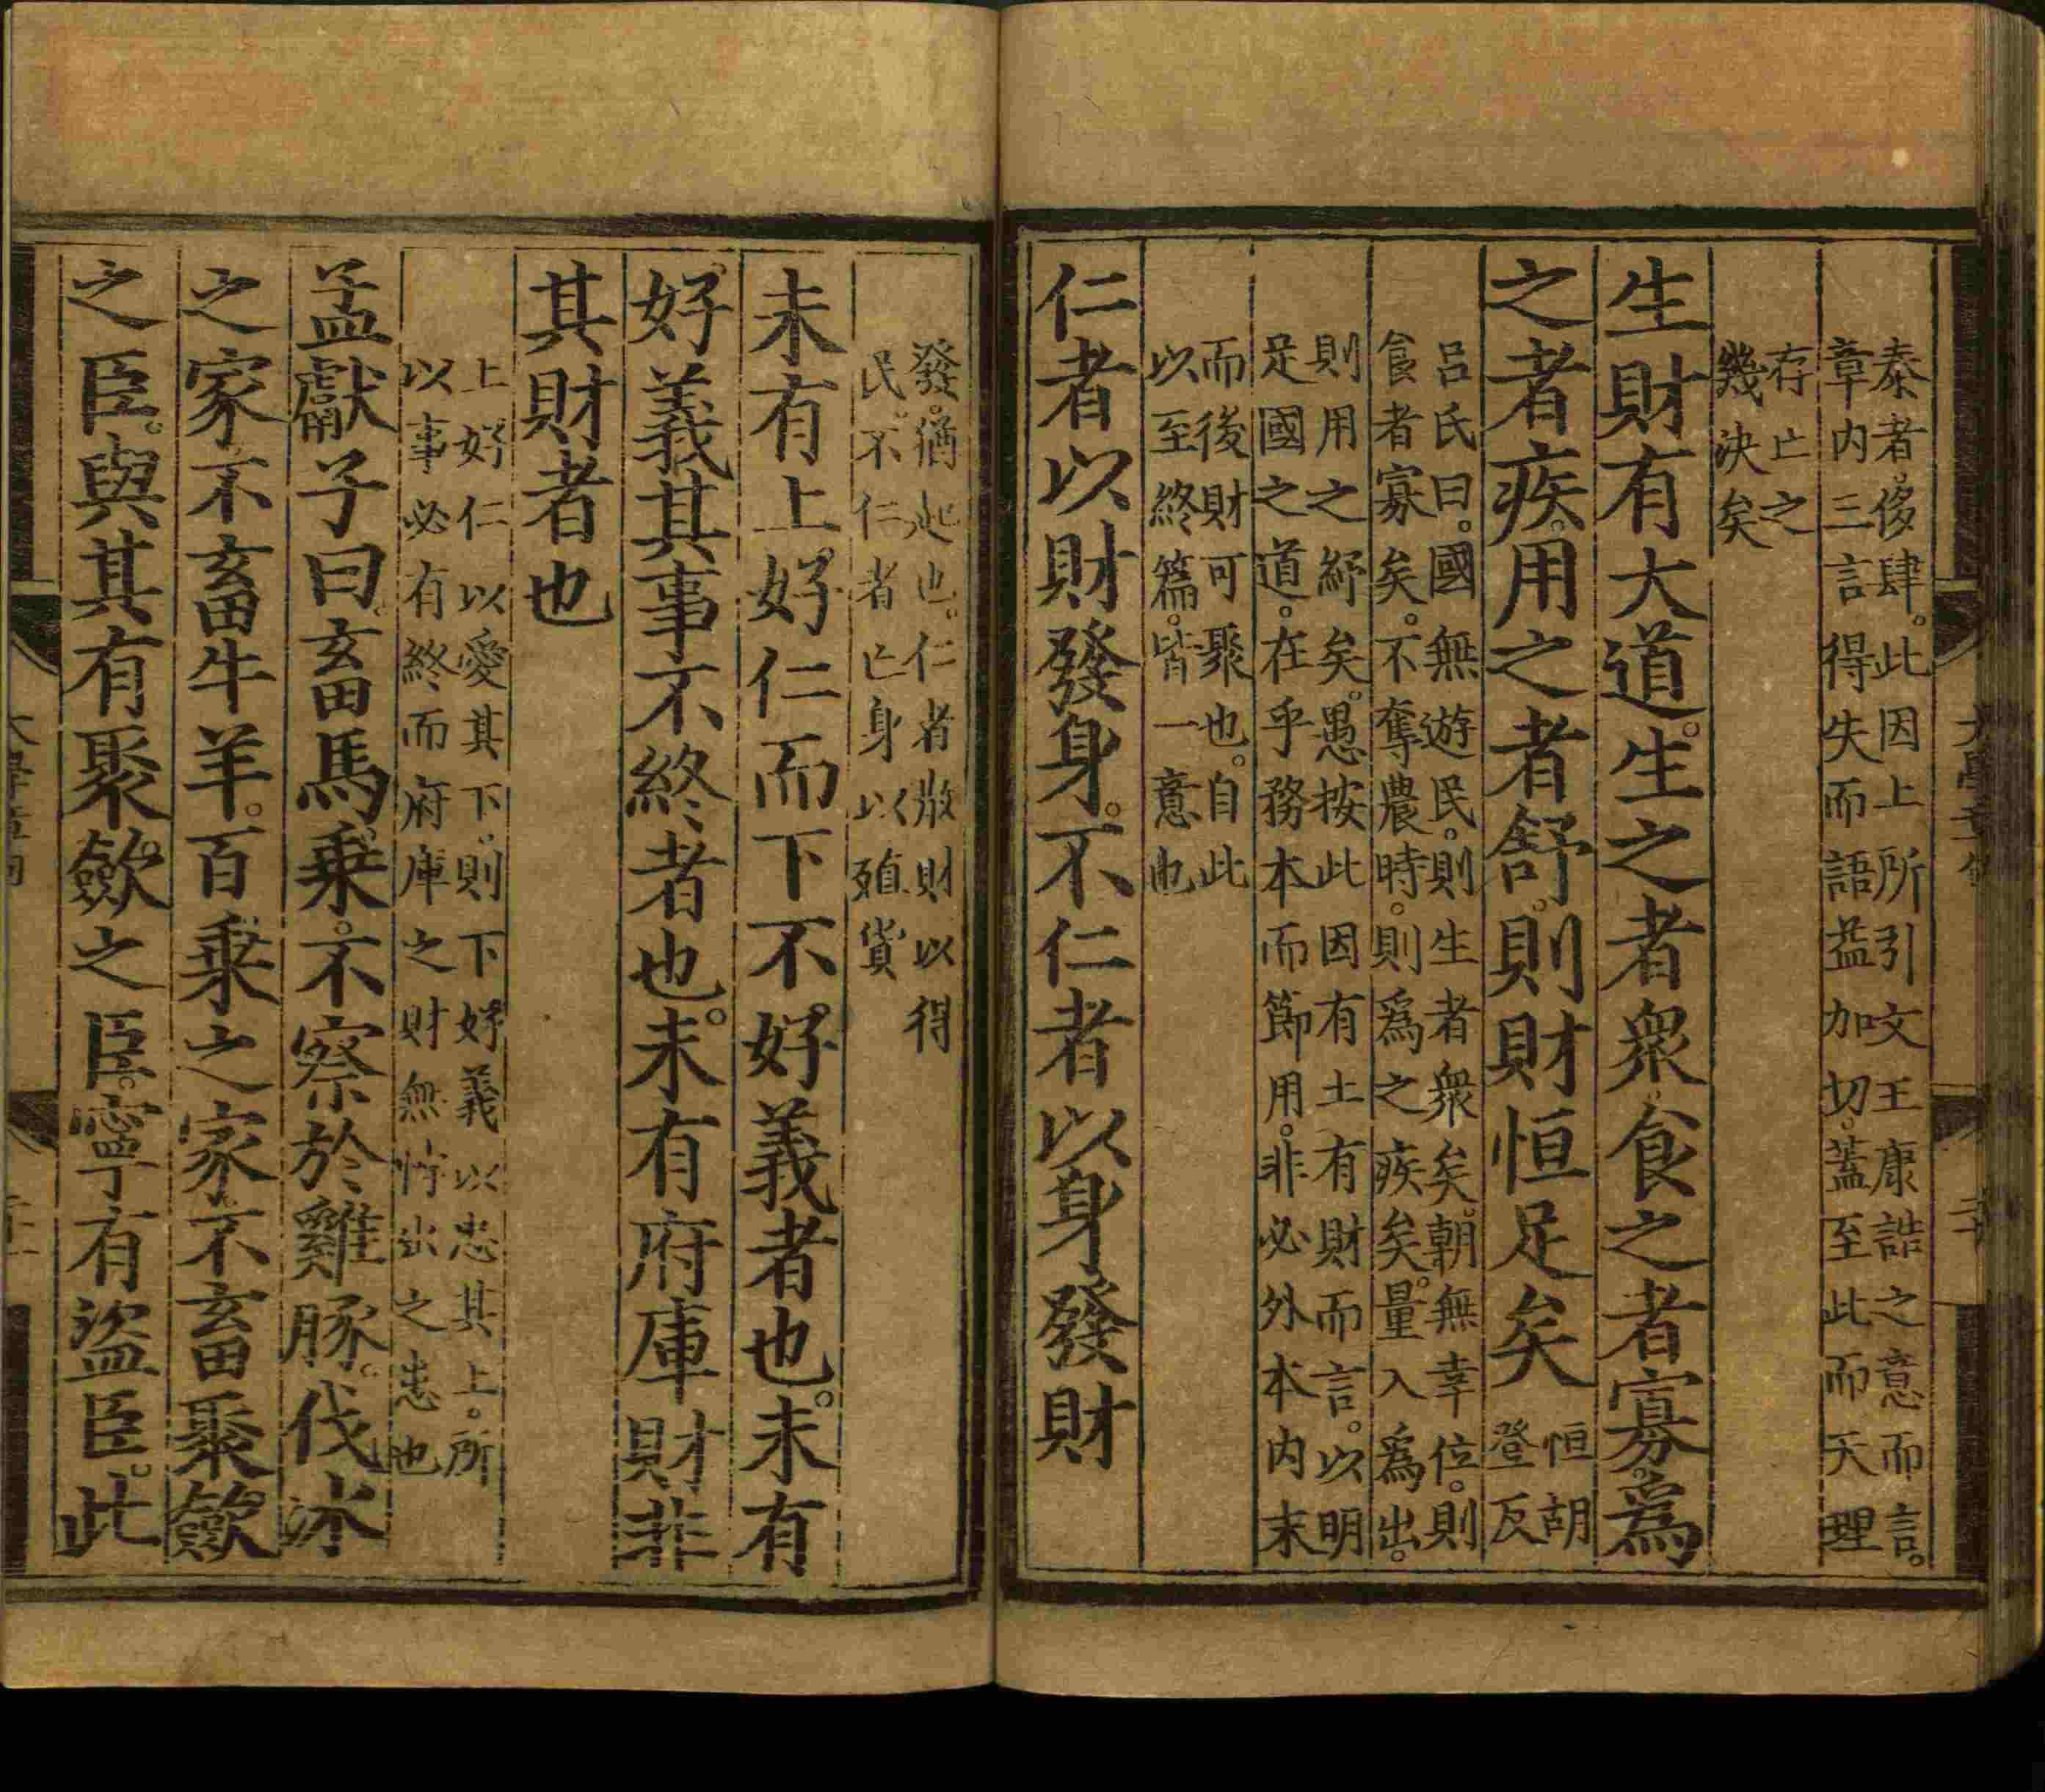 泰者。侈肆。此因上所引文王康誥之意而言。
章內三言得失而語益加切。蓋至此而天理
存亡之
幾決矣
生財有大道。生之者衆。食之者寡。爲
之者疾。用之者舒。則財恒足矣
恒胡
登反
呂氏曰。國無遊民。則生者衆矣。朝無幸位。則
食者寡矣。不奪農時。則爲之疾矣。量入爲出。
則用之紓矣。愚按此因有土有財而言。以明
足國之道。在乎務本而節用。非必外本內末
而後財可聚也。自此
以至終篇。皆一意也
仁者以財發身。不仁者以身發財
發。猶起也。仁者散財以得
民。不仁者亡身以殖貨
未有上好仁而下不好義者也。未有
好義其事不終者也。未有府庫財非
其財者也
上好仁以愛其下。則下好義以忠其上。所
以事必有終而府庫之財無悖出之患也
孟獻子曰。畜馬乗。不察於雞豚。伐冰
之家。不畜牛羊。百乗之家。不畜聚斂
之臣。與其有聚斂之臣。寧有盜臣。此